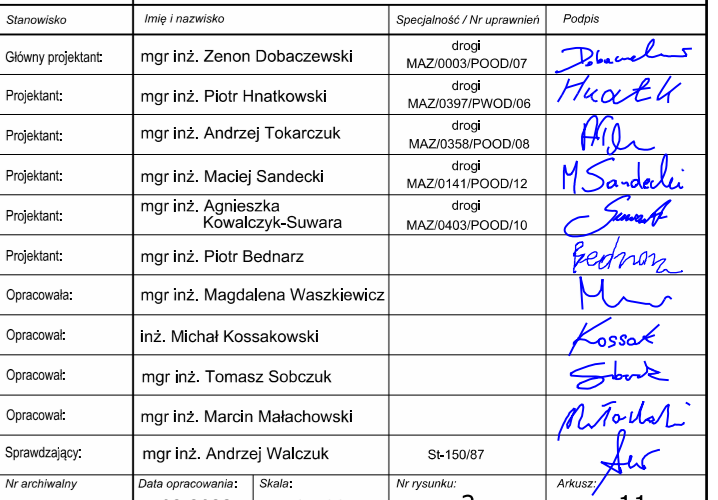 Stanowisko Imię i nazwisko Specjalność / Nr uprawnień Podpis
Główny projektant: mgr inż. Zenon Dobaczewski drogi
MAZ/0003/POOD/07
Projektant: mgr inż. Piotr Hnatkowski drogi
MAZ/0397/PWOD/06
Projektant: mgr inż. Andrzej Tokarczuk drogi
MAZ/0358/POOD/08
Projektant: mgr inż. Maciej Sandecki drogi
MAZ/0141/POOD/12 M Sandecki
Projektant: mgr inż. Agnieszka drogi
Kowalczyk-Suwara MAZ/0403/POOD/10
Projektant: mgr inż. Piotr Bednarz
Opracowała: mgr inż. Magdalena Waszkiewicz
Opracował: inż. Michał Kossakowski Kossak
Opracował: mgr inż. Tomasz Sobczuk
Opracował: mgr inż. Marcin Małachowski
Sprawdzający: mgr inż. Andrzej Walczuk St-150/87
Nr archiwalny Data opracowania: Skala: Nr rysunku: Arkusz:
11